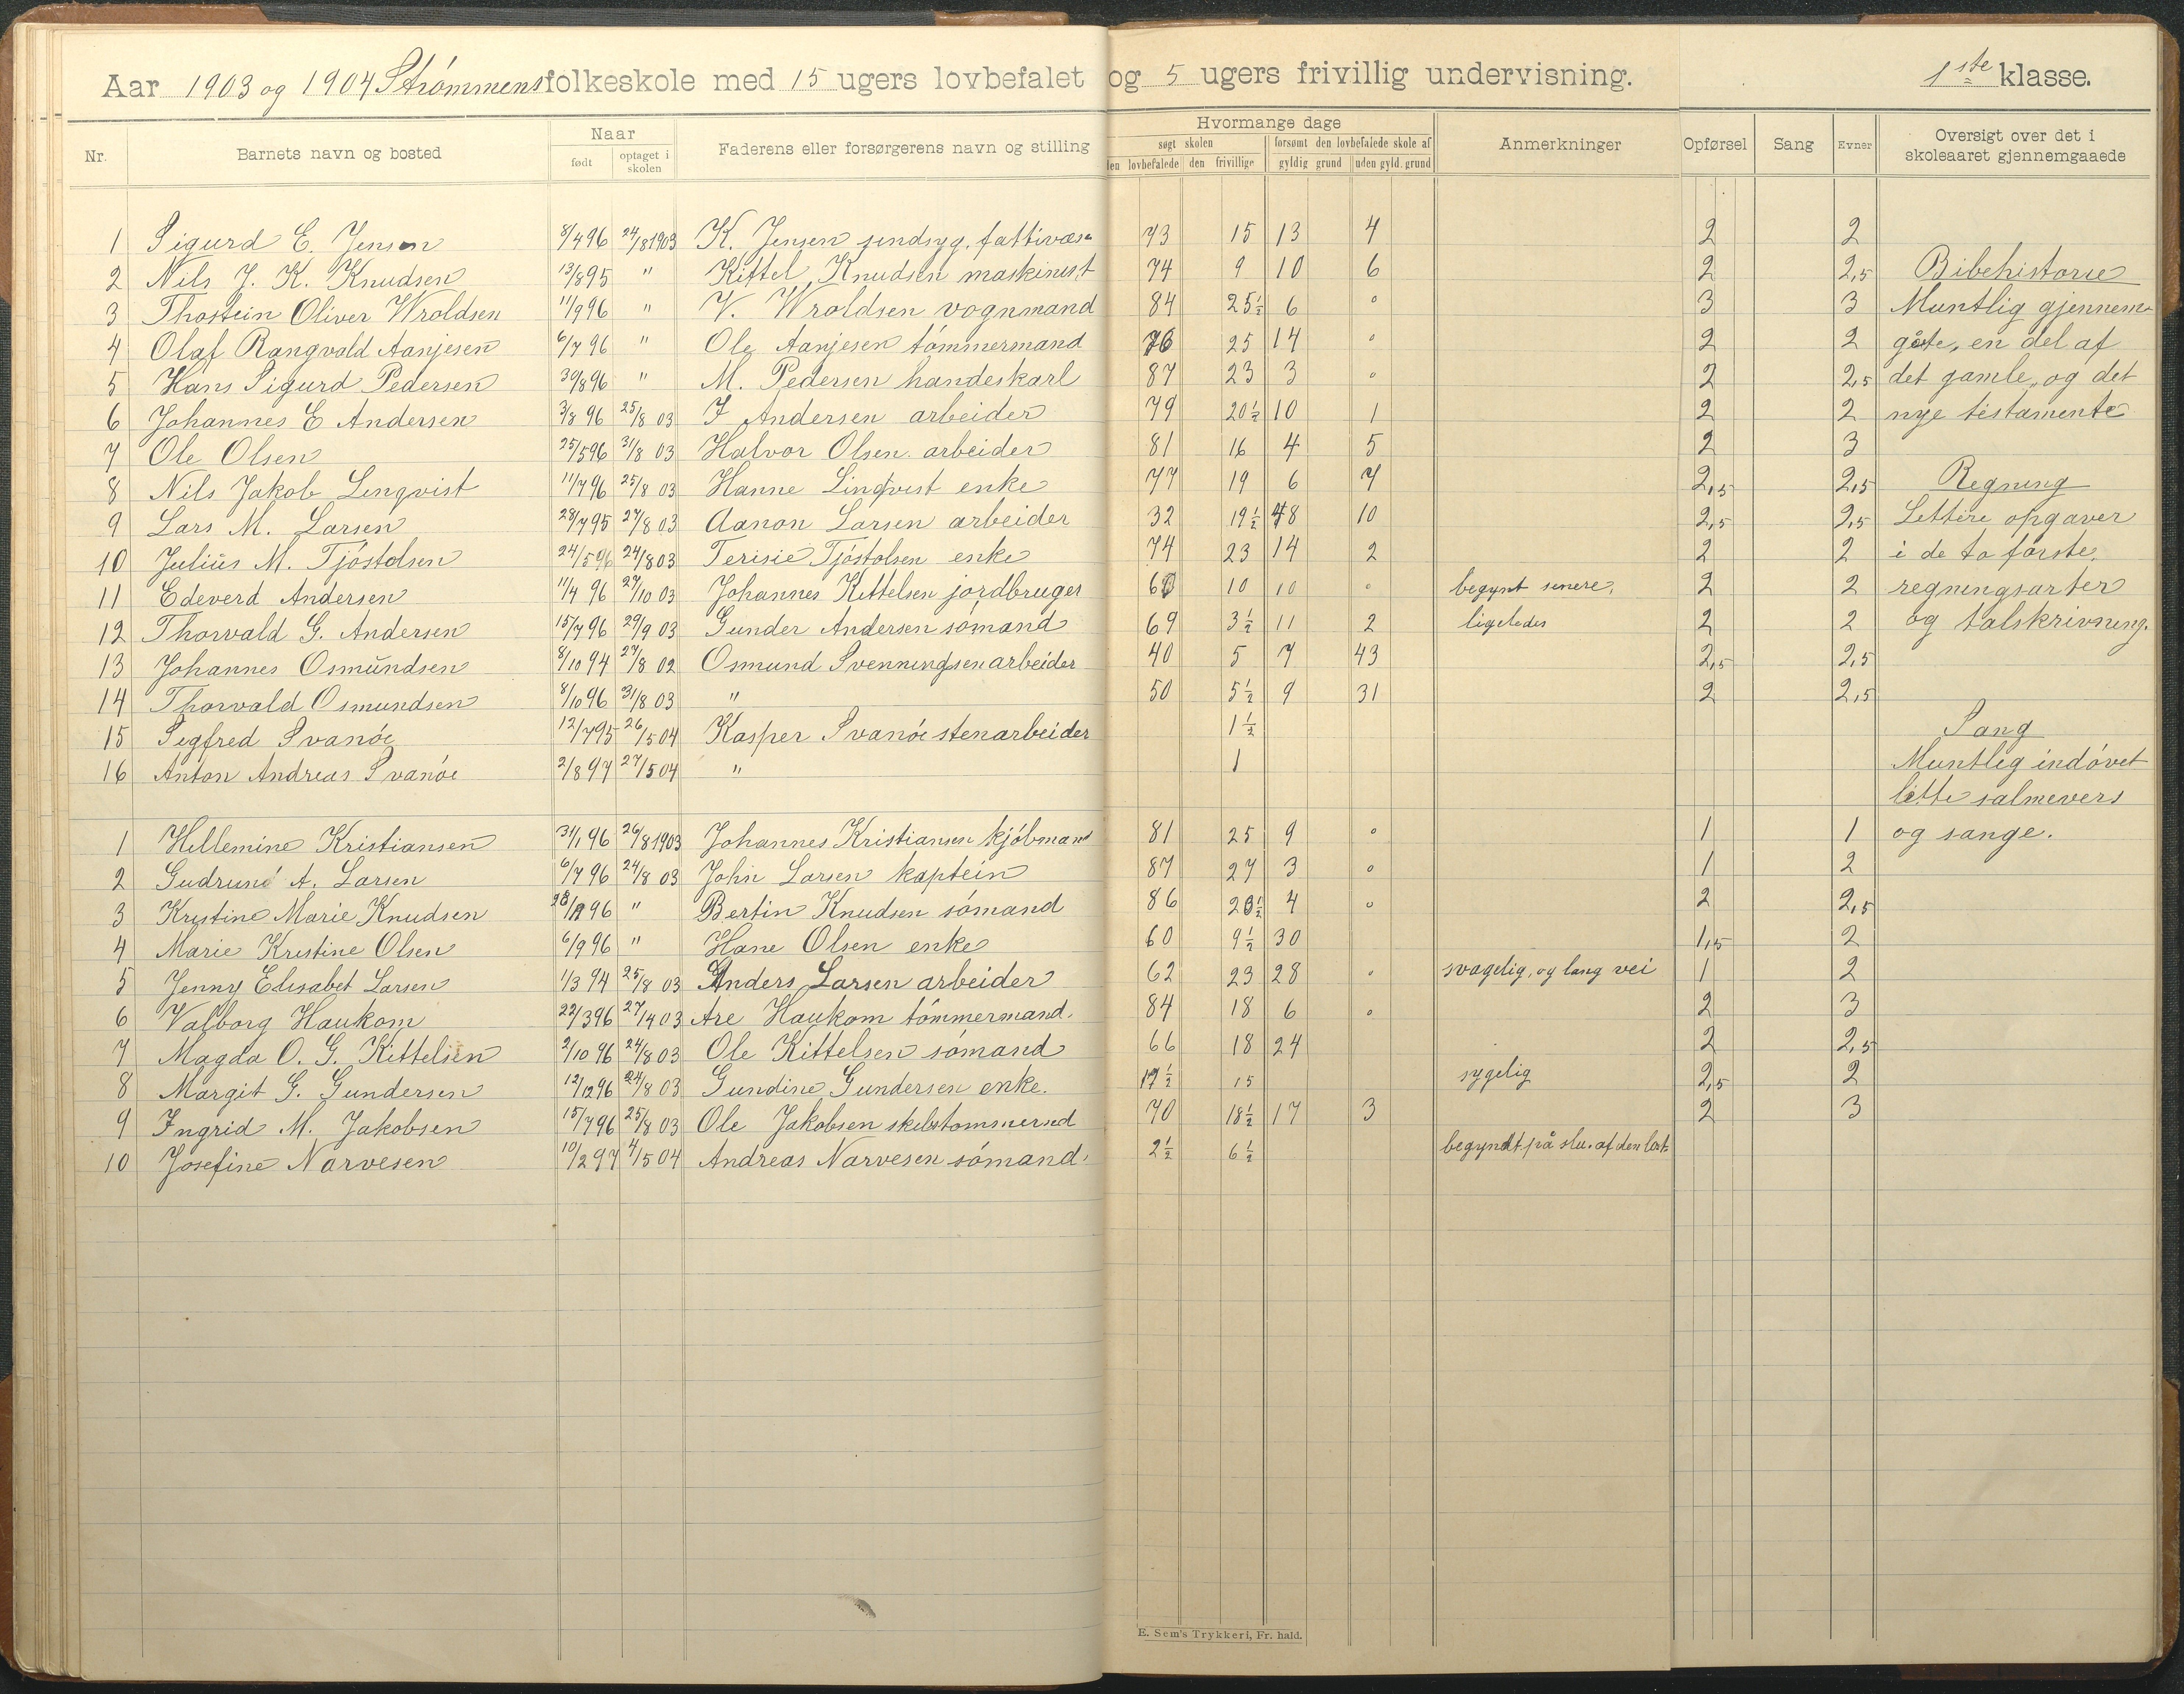 Aar 1903 og 1904 Strømmens folkeskole med 15 ugers lovbefalet og 5 ugers frivillig undervisning. 1ste klasse.
Nr. Barnets navn og bosted Naar født optaget i skolen Faderens eller forsørgerens navn og stilling Hvormange dage søgt skolen den lovbefalede den frivillige forsømt den lovbefalede skole af gyldig grund uden gyld. grund Anmerkninger Opførsel Sang Evner Oversigt over det i skoleaaret gjennemgaaede
1 Sigurd E. Jensen 8/4 96 24/8 1903 K. Jensen sindsyg. fattivæs 73 15 13 4 2 2
2 Nils J. K. Knudsen 13/8 95 " Kittel Knudsen maskinist 74 9 10 6 2 2,5 Bibehistorie
3 Thostein Oliver Wroldsen 11/9 96 " V. Wroldsen vognmand 84 25½ 6 0 3 3 Muntlig gjennem-
4 Olaf Rangvald Aanjesen 6/7 96 " Ole Aanjesen tømmermand 76 25 14 0 2 2 gåte, en del af
5 Hans Sigurd Pedersen 30/8 96 " M. Pedersen handeskarl 87 23 3 0 2 2,5 det gamle, og det
6 Johannes E Andersen 3/8 96 25/8 03 J Andersen arbeider 79 20½ 10 1 2 2 nye testamente
7 Ole Olsen 25/5 96 31/8 03 Halvor Olsen arbeider 81 16 4 5 2 3
8 Nils Jakob Linqvist 11/7 96 25/8 03 Hanne Linqvist enke 77 19 6 7 2,5 2,5 Regning
9 Lars M. Larsen 28/7 95 27/8 03 Aanon Larsen arbeider 32 19½ 48 10 2,5 2,5 Lettere opgaver
10 Julius M. Tjøstolsen 24/5 96 24/8 03 Terisie Tjøstolsen enke 74 23 14 2 2 2 i de to første
11 Edeverd Andersen 11/4 96 27/10 03 Johannes Kittelsen jordbruger 60 10 10 0 begynt senere. 2 2 regningsarter
12 Thorvald G. Andersen 15/7 96 29/9 03 Gunder Andersen sømand 69 3½ 11 2 ligeledes 2 2 og talskrivning.
13 Johannes Osmundsen 8/10 94 27/8 02 Osmund Svenningsen arbeider 40 5 7 43 2,5 2,5
14 Thorvald Osmundsen 8/10 96 31/8 03 " 50 5½ 9 31 2 2,5
15 Sigfred Svanøe 12/7 95 26/5 04 Kasper Svanøe stenarbeider 1½ Sang
16 Anton Andreas Svanøe 2/8 97 27/5 04 " 1 Muntlig indøvet
lette salmevers
1 Hellemine Kristiansen 31/1 96 26/8 1903 Johannes Kristiansen kjøbmand 81 25 9 0 1 1 og sange.
2 Gudrund A. Larsen 6/7 96 24/8 03 John Larsen kaptein 87 27 3 0 1 2
3 Kristine Marie Knudsen 96 " Bertin Knudsen sømand 86 4 0 2 2,5
4 Marie Kristine Olsen 6/9 96 " Hane Olsen enke 60 9½ 30 1,5 2
5 Jenny Elisabet Larsen 1/3 94 25/8 03 Anders Larsen arbeider 62 23 28 0 svagelig, og lang vei 1 2
6 Valborg Haukom 22/3 96 03 Are Haukom tømmermand. 84 18 6 0 2 3
7 Magda O. G. Kittelsen 2/10 96 24/8 03 Ole Kittelsen sømand 66 18 24 2 2,5
8 Margit G. Gundersen 12/12 96 24/8 03 Gundine Gundersen enke. 17½ 15 sygelig 2,5 2
9 Ingrid M. Jakobsen 15/7 96 25/8 03 Ole Jakobsen 70 18½ 17 3 2 3
10 Josefine Narvesen 10/2 97 4/5 04 Andreas Narvesen sømand. 2½ 6½ begyndt på slu. af den
E. Sem's Trykkeri, Fr. hald.